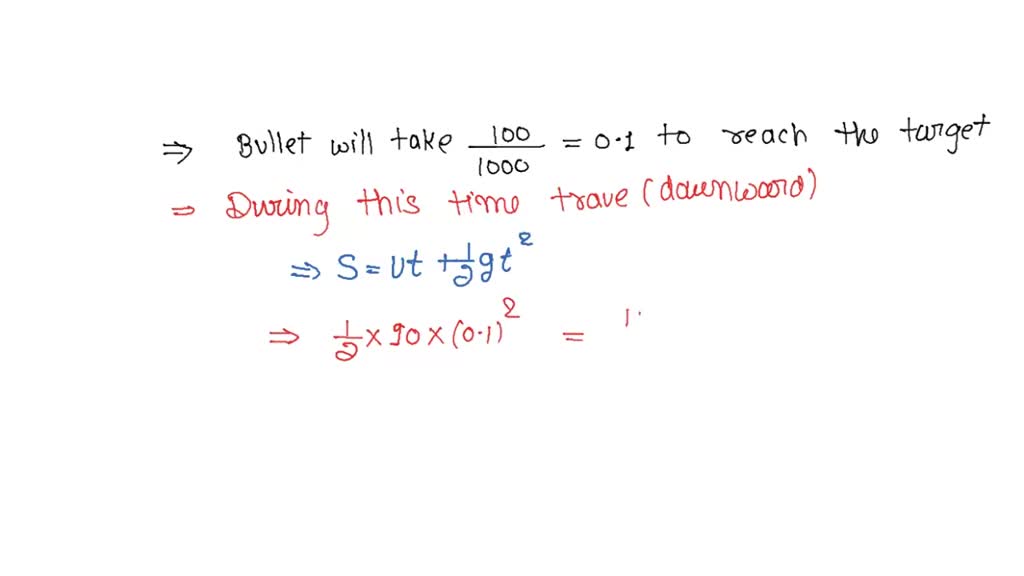 ⇒ Bullet will take 100/1000 = 0.1 to reach the target
⇒ During this time trave (downward)
⇒ S = Ut + 1/2 gt²
⇒ 1/2 × 90 × (0.1)² =